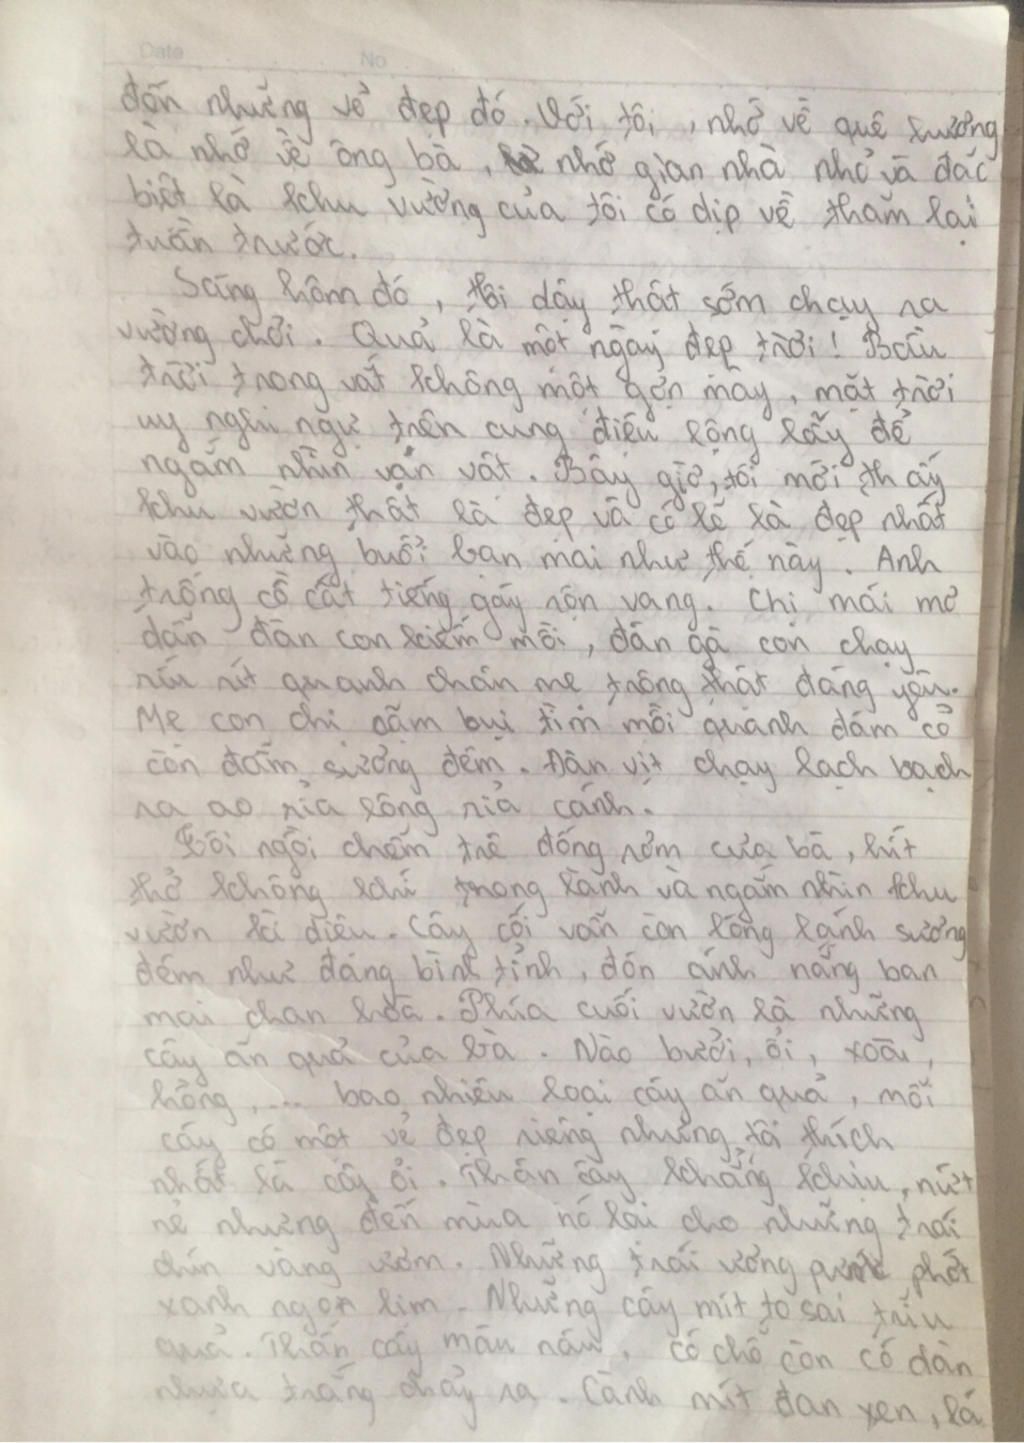 Date No
đón những vẻ đẹp đó. Với tôi, nhớ về quê hương
là nhớ về ông bà, nhớ gian nhà nhỏ và đặc
biệt là khu vường của tôi có dịp về thăm lại
tuần trước.
Sáng hôm đó, tôi dậy thật sớm chạy ra
vường chơi. Quả là một ngày đẹp trời! Bầu
trời trong vắt không một gợn mây, mặt trời
uy nghi ngự trên cung điệu lộng lẫy để
ngắm nhìn vạn vật. Bây giờ, tôi mới thấy
khu vườn thật là đẹp và có lẽ là đẹp nhất
vào những buổi ban mai như thế này. Anh
trống cồ cất tiếng gáy rộn vang. Chị mái mơ
dẫn đàn con kiếm mồi, đán gà con chạy
ríu rít quanh chân mẹ trông thật đáng yêu.
Mẹ con chị tìm mồi quanh đám cỏ
còn đẫm sương đêm. Đàn vịt chạy lạch bạch
ra ao rỉa lông rỉa cánh.
Tôi ngồi chễm trệ đống rơm của bà, hít
thở không khí trong lành và ngắm nhìn khu
vườn kì diệu. Cây cối vẫn còn lóng lánh sương
đêm như đáng bình tĩnh, đón ánh nắng ban
mai chan hoà. Phía cuối vườn là những
cây ăn quả của bà. Nào bưởi, ổi, xoài,
hồng,... bao nhiêu loại cây ăn quả, mỗi
cây có một vẻ đẹp riêng nhưng tôi thích
nhất là cây ổi. Thân cây khẳng khiu, nứt
nẻ nhưng đến mùa nó lại cho những trái
chín vàng ươm. Những trái ương phớt
xanh ngon lim. Những cây mít to sai trĩu
quả. Thân cây màu nâu, có chỗ còn có dàn
nhựa trắng chảy ra. Cành mít đan xen, lá